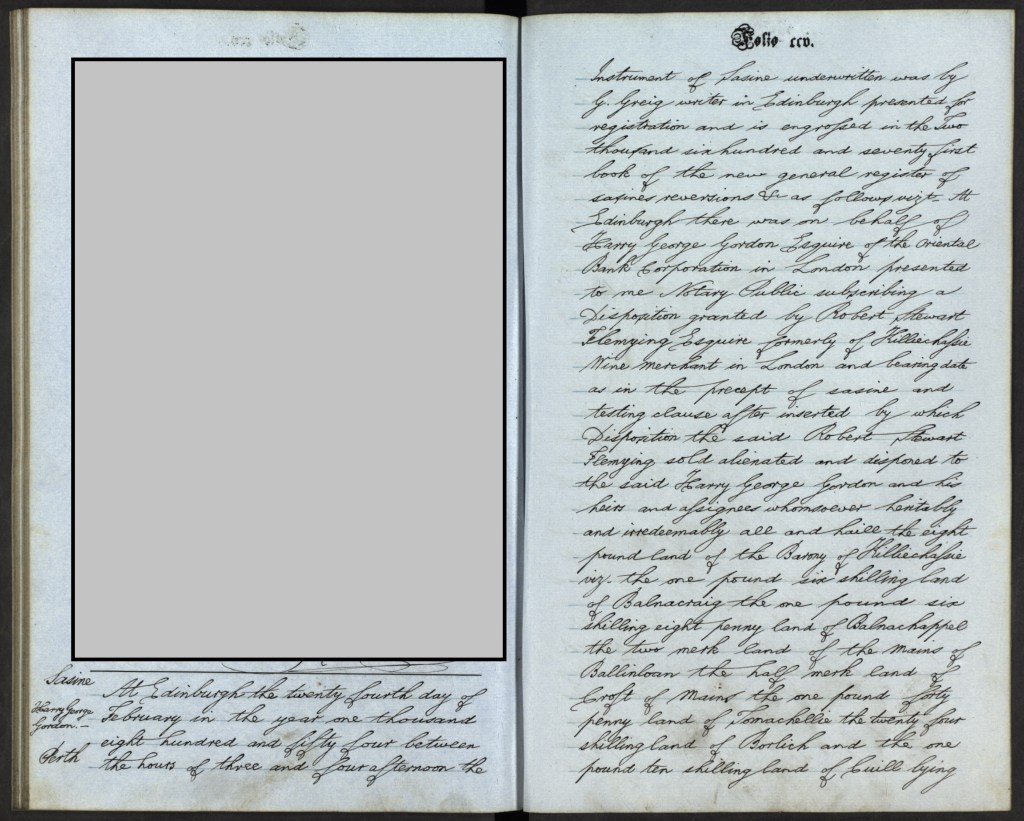 Sasine
Harry George
Gordon.—
Perth
At Edinburgh the twenty fourth day of
February in the year one thousand
eight hundred and fifty four between
the hours of three and four afternoon the
Folio ccv.
Instrument of Sasine underwritten was by
G. Greig writer in Edinburgh presented for
registration and is engrossed in the Two
thousand six hundred and seventy first
book of the new general register of
sasines reversions &c as follows vizt. At
Edinburgh there was on behalf of
Harry George Gordon Esquire of the Oriental
Bank Corporation in London presented
to me Notary Public subscribing a
Disposition granted by Robert Stewart
Flemyng Esquire formerly of Killiechassie
Wine merchant in London and bearing date
as in the precept of sasine and
testing clause after inserted by which
Disposition the said Robert Stewart
Flemyng sold alienated and disponed to
the said Harry George Gordon and his
heirs and assignees whomsoever heritably
and irredeemably all and haill the eight
pound land of the Barony of Killiechassie
viz. the one pound six shilling land
of Balnacraig the one pound six
shilling eight penny land of Balnachappel
the two merk land of the mains of
Ballinloan the half merk land of
Croft of Mains the one pound forty
penny land of Tomachellie the twenty four
shilling land of Borlich and the one
pound ten shilling land of Cuill lying